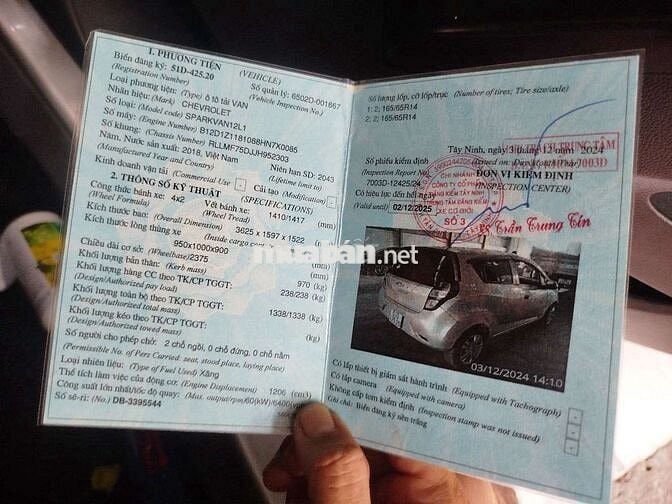 1. PHƯƠNG TIỆN (VEHICLE)
Biển đăng ký: 51D-425.20 Số quản lý: 6502D-001667
(Registration Number) (Vehicle Inspection No.)
Loại phương tiện: (Type) ô tô tải VAN
Nhãn hiệu: (Mark) CHEVROLET
Số loại: (Model code) SPARKVAN12L1
Số máy: (Engine Number) B12D1Z1181088HN7X0085
Số khung: (Chassis Number) RLLMF75DJJH952303
Năm, Nước sản xuất: 2018, Việt Nam Niên hạn SD: 2043
(Manufactured Year and Country) (Lifetime limit to)
Kinh doanh vận tải (Commercial Use) - Cải tạo (Modification) -
2. THÔNG SỐ KỸ THUẬT (SPECIFICATIONS)
Công thức bánh xe: 4x2 Vết bánh xe: 1410/1417 (mm)
(Wheel Formula) (Wheel Tread)
Kích thước bao: (Overall Dimension) 3625 x 1597 x 1522 (mm)
Kích thước lòng thùng xe (Inside cargo
950x1000x900 (mm)
Chiều dài cơ sở: (Wheelbase) 2375 (mm)
Khối lượng bản thân: (Kerb mass) 970 (kg)
Khối lượng hàng CC theo TK/CP TGGT: 238/238 (kg)
(Design/Authorized pay load)
Khối lượng toàn bộ theo TK/CP TGGT: 1338/1338 (kg)
(Design/Authorized total mass)
Khối lượng kéo theo TK/CP TGGT: (kg)
(Design/Authorized towed mass)
Số người cho phép chở: 2 chỗ ngồi, 0 chỗ đứng, 0 chỗ nằm
(Permissible No. of Pers Carried: seat, stood place, laying place)
Loại nhiên liệu: (Type of Fuel Used) Xăng
Thể tích làm việc của động cơ: (Engine Displacement) 1206 (cm3)
Công suất lớn nhất/tốc độ quay: (Max. output/rpm) 60(kW)/6400
Số sê-ri: (No.) DB-3395544
Số lượng lốp, cỡ lốp/trục (Number of tires; Tire size/axle)
1: 2; 165/65R14
2: 2; 165/65R14
Tây Ninh, ngày 3 tháng 12 năm 2024
Số phiếu kiểm định (Issued on: Day/Month/Year)
(Inspection Report No) ĐƠN VỊ KIỂM ĐỊNH
7003D-12425/24 (INSPECTION CENTER)
Có hiệu lực đến hết ngày
(Valid until) 02/12/2025
TRUNG TÂM
7003D
CHI NHÁNH
CÔNG TY CỔ PHẦN
ĐĂNG KIỂM TÂY NINH
TRUNG TÂM ĐĂNG KIỂM
XE CƠ GIỚI
SỐ 3
Trần Trung Tín
muabán.net
03/12/2024 14:10
Có lắp thiết bị giám sát hành trình (Equipped with Tachograph) -
Có lắp camera (Equipped with camera) -
Không cấp tem kiểm định (Inspection stamp was not issued) -
Ghi chú: Biển đăng ký nền trắng